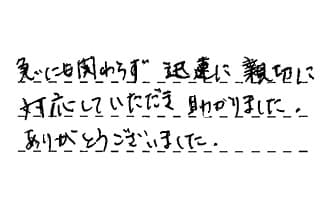 急にも関わらず 迅速に 親切に
対応していただき 助かりました.
ありがとうございました.